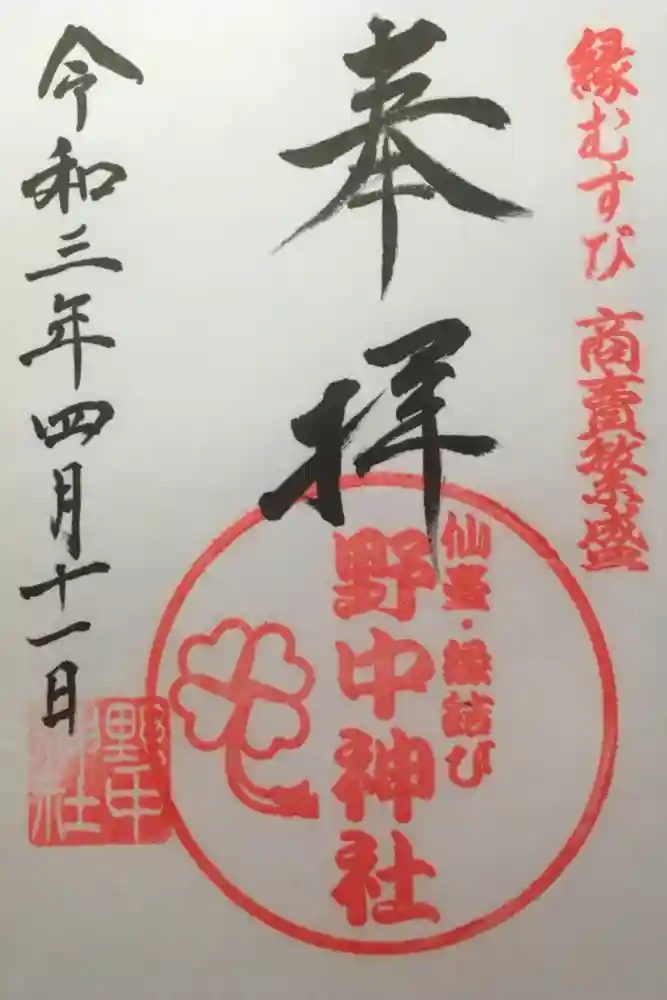 縁むすび 商賣繁盛
奉拝
仙臺・縁結び
野中神社
令和三年四月十一日
野中
神社